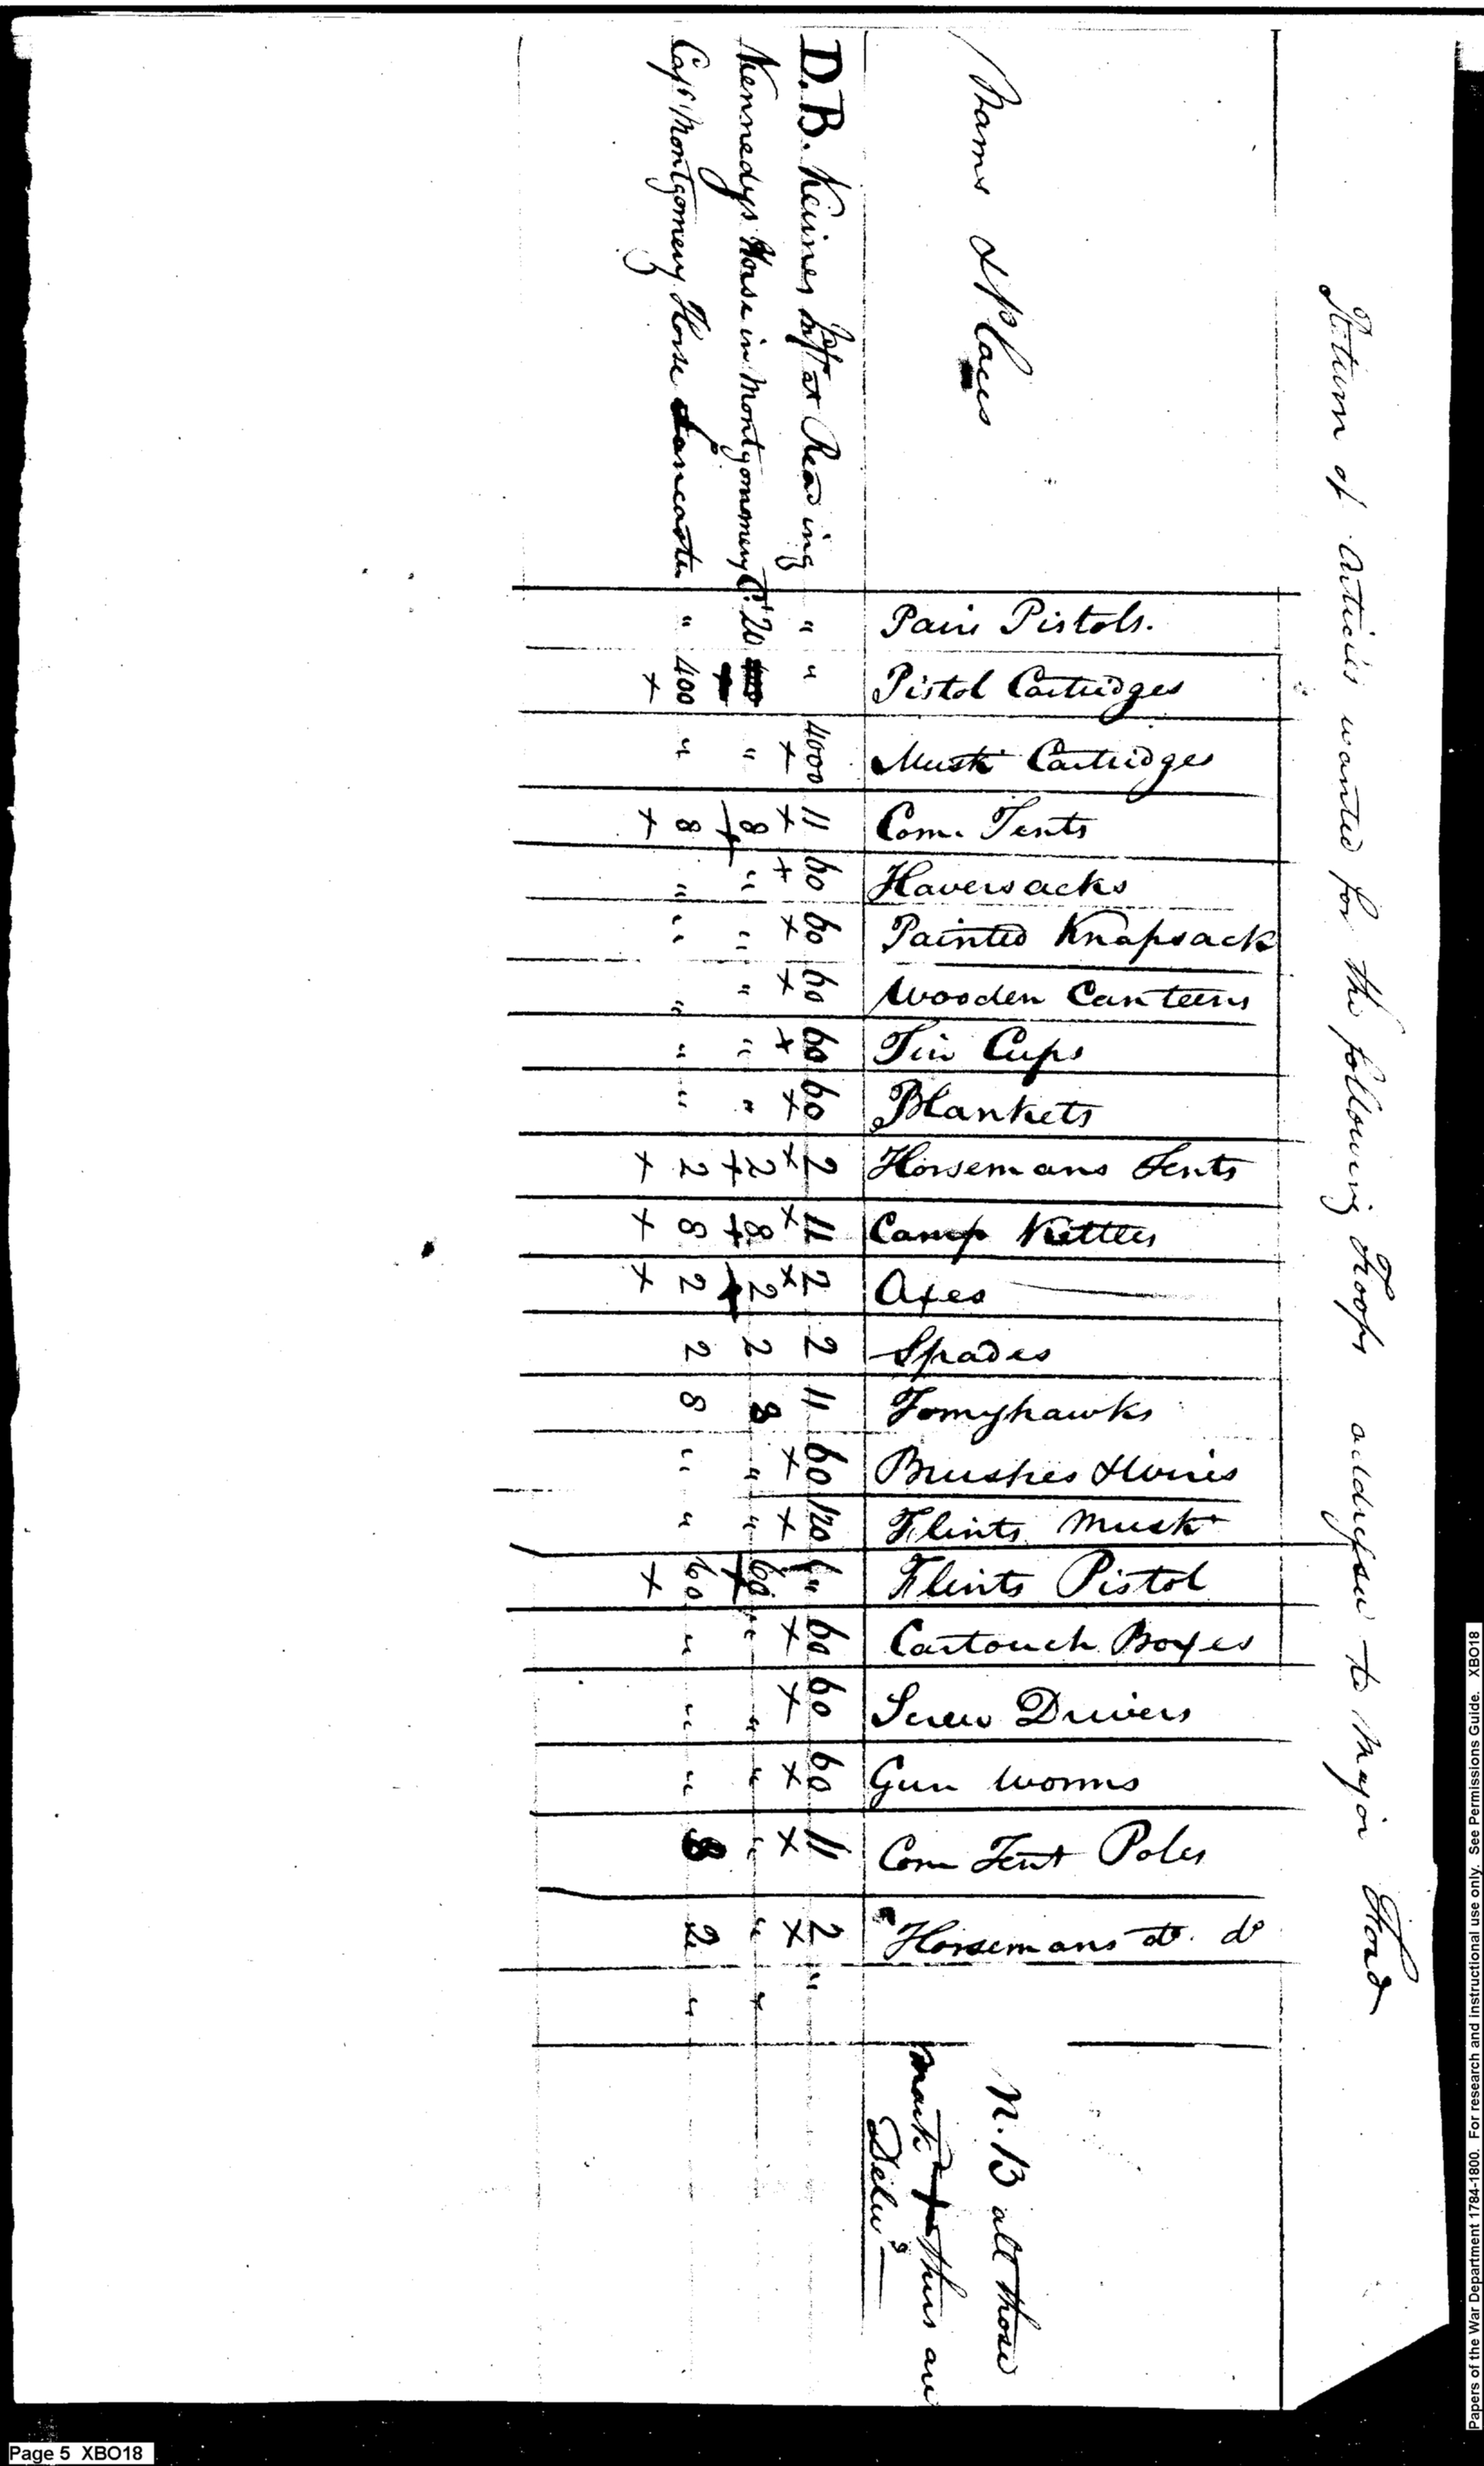 Return of Articles wanted for the following Troops addressed to Major Ford
Names & Places
Pairs Pistols.
Pistol Cartridges
Musk Cartridges
Com. Tents
Haversacks
Painted Knapsack
Wooden Canteens
Tin Cups
Blankets
Horsemans Tents
Camp Kettles
Axes
Spades
Tomyhawks
Brushes & Wires
Flints Musk
Flints Pistol
Cartouch Boxes
Screw Drivers
Gun Worms
Com Tent Poles
Horsemans do. do
N.B all those
mark + thus are
Delivd
D.B. Keimes at Reading " " 4000 + 11 + 60 + 60 + 60 + 60 + 60 + 2 + 11 + 2 + 2 11 60 + 120 + " 60 + 60 + 60 + 11 + 2 + "
Kennedys Horse in Montgomomery C. 20 " 8 + " " " " " 2 + 8 + 2 + 2 8 " " 60 + " " " " " "
Capt Montgomery Horse Lancaster " 400 + " 8 + " " " " " 2 + 8 + 2 + 2 8 " " 60 + " " " 8 2 "
Papers of the War Department 1784-1800. For research and instructional use only. See Permissions Guide. XBO18
Page 5 XBO18